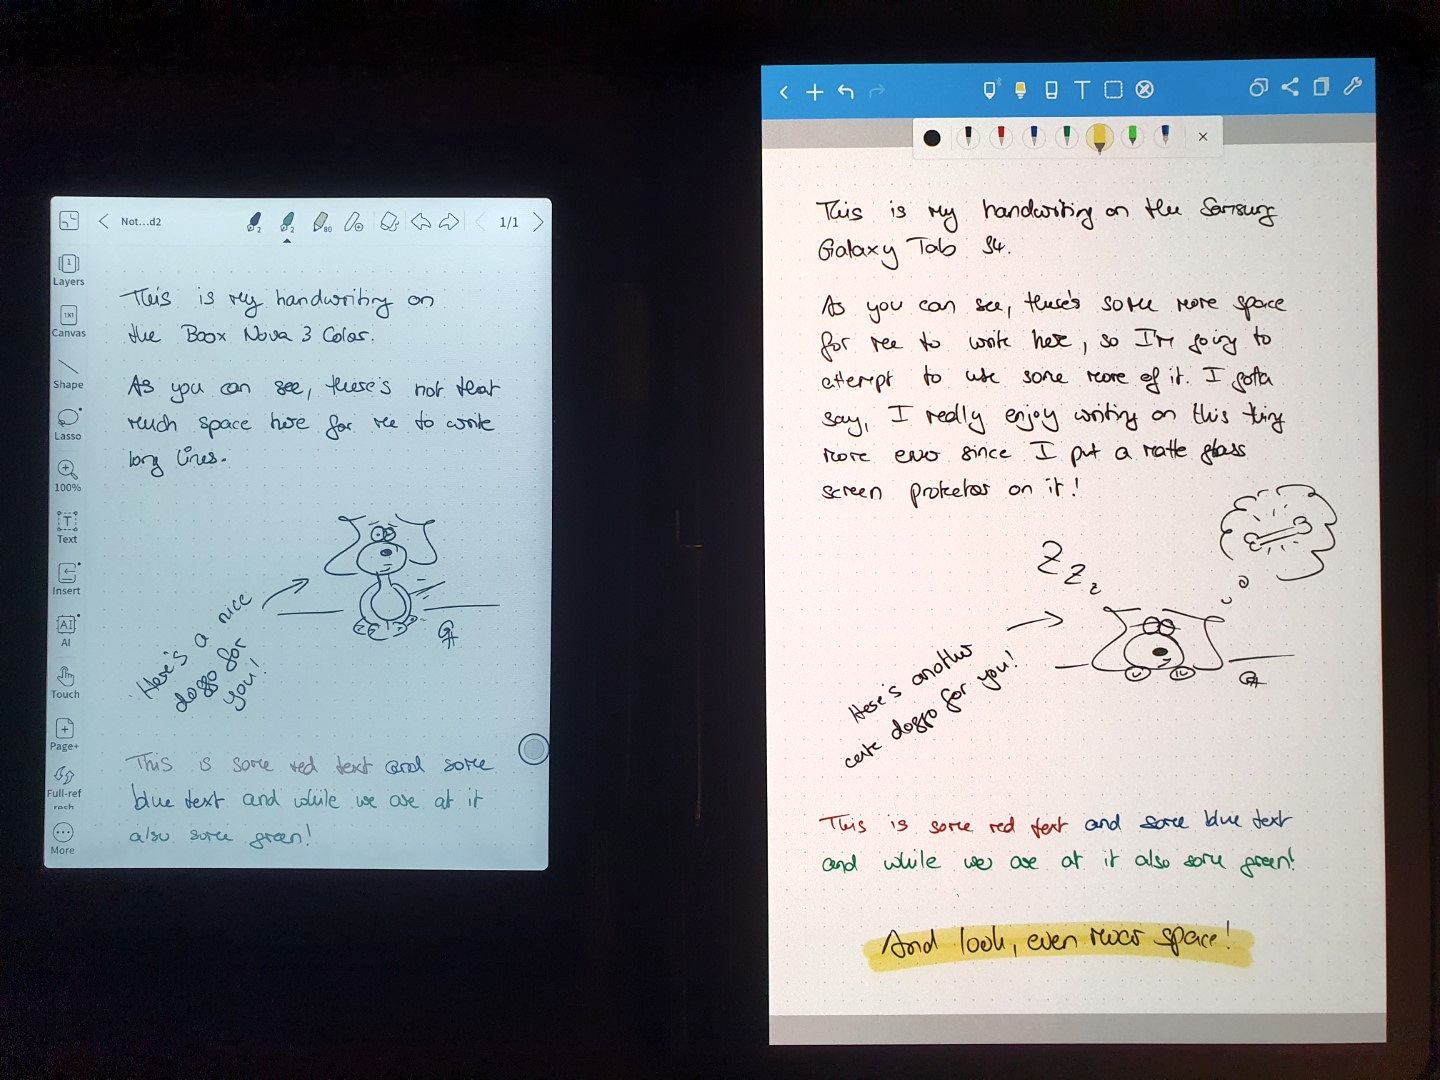 Not...d2
2
2
80
1/1
1
Layers
1X1
Canvas
Shape
Lasso
100%
T
Text
Insert
AI
AI
Touch
Page+
Full-ref
resh
More
This is my handwriting on
the Boox Nova 3 Color.
As you can see, there's not that
much space here for me to write
long lines.
Here's a nice
doggo for
you!
This is some red text and some
blue text and while we are at it
also some green!
T
This is my handwriting on the Samsung
Galaxy Tab S4.
As you can see, there's some more space
for me to write here, so I'm going to
attempt to use some more of it. I gotta
say, I really enjoy writing on this thing
more ever since I put a matte glass
screen protector on it!
Z Z z
Here's another
cute doggo for you!
This is some red text and some blue text
and while we are at it also some green!
And look, even more space!